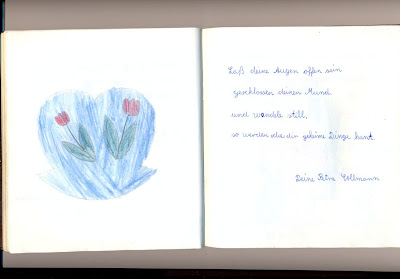 Laß deine Augen offen sein
geschlossen deinen Mund
und wandle still,
so werden dir geheime Dinge kunt.
Deine Petra